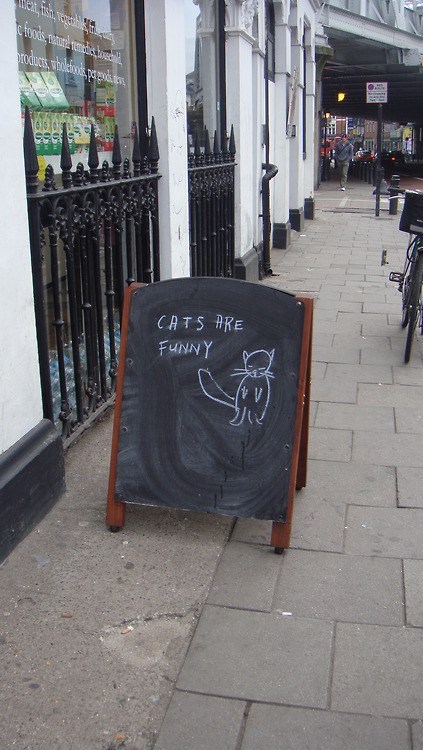 meat, fish, vegetables, fruit, dairy
foods, natural remedies, household
products, wholefoods, pet goods, news,
CATS ARE
FUNNY